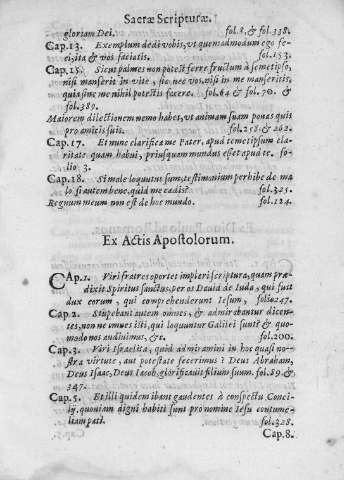 Sacræ Scripturæ.
gloriam Dei. fol.8.& fol.338.
Cap.13. Exemplum dedi vobis, vt quem admodum ego fe-
ci, ita & vos faciatis. fol.153.
Cap.15. Sicut palmes non potest ferre fructum à semetipso,
nisi manserit in vite, sic nec vos, nisi in me manseritis,
quia sine me nihil potestis facere. fol.64 & fol.70. &
fol.389.
Maiorem dilectionem nemo habet, vt animam suam ponas quis
pro amicis suis. fol.258.& 262.
Cap.17. Et nunc clarifica me Pater, apud temetipsum cla-
ritate quam habui, priusquam mundus esset apud te. fo-
lio 3.
Cap.18. Si male loquutus sum, testimonium perhibe de ma
lo si autem bene, quid me cædis? fol.325.
Regnum meum non est de hoc mundo. fol.124.
Ex Actis Apostolorum.
CAp.1. Viri fratres oportet impleri scriptura, quam præ-
dixit Spiritus sanctus, per os Dauid de Iuda, qui fuit
dux eorum, qui comprehenderunt Iesum, folio 247.
Cap.2. Stupebant autem omnes, & admirabantur dicen-
tes, non ne omnes isti, qui loquuntur Galilei sunt? & quo-
modo nos audiuimus, &c. fol.200.
Cap.3. Viri Israelitæ, quid admiramini in hoc quasi no-
stra virtute, aut potestate fecerimus? Deus Abraham,
Deus Isaac, Deus Iacob, glorificauit filium suum. fol.89.&
347.
Cap.5. Et illi quidem ibant gaudentes à conspectu Conci-
lij, quoniam digni habiti sunt pro nomine Iesu contume-
liam pati. fol.328.
Cap.8.